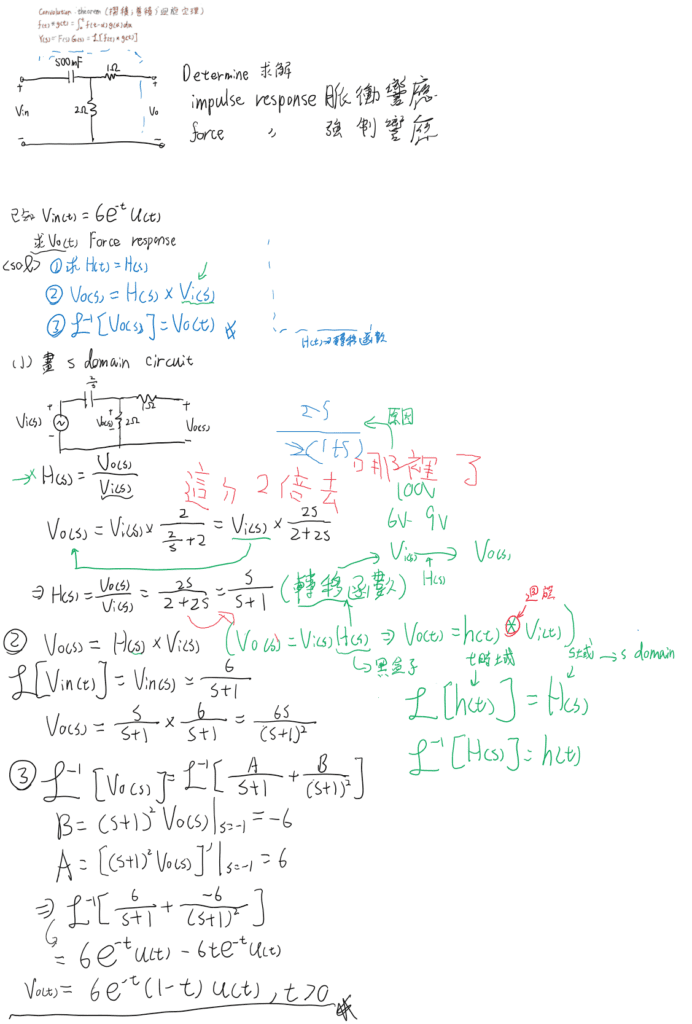 Convolution theorem (摺積, 捲積, 迴旋定理)
f(t)*g(t) = ∫₀ᵗ f(t-α)g(α)dα
Y(s) = F(s)G(s) = ℒ[f(t)*g(t)]
500mF 1Ω
+ Vin - 2Ω + Vo -
Determine 求解
impulse response 脈衝響應
force 〃 強制響應
已知 Vin(t) = 6e^-t u(t)
求Vo(t) Force response
<sol> ① 求 H(t) = H(s)
② Vo(s) = H(s) × Vi(s)
③ ℒ⁻¹[Vo(s)] = Vo(t)
H(t)⇒轉移函數
(1) 畫 s domain circuit
2/s 1Ω
Vi(s) + - Vo(s) 2Ω + Vo(s) -
2S / 2(1+S) ← 原因
這分2倍去哪裡了
* H(s) = Vo(s)/Vi(s)
100V
6V 9V
Vo(s) = Vi(s) × 2/(2/s + 2) = Vi(s) × 2S/(2+2S)
Vi(s) → Vo(s)
H(s)
⇒ H(s) = Vo(s)/Vi(s) = 2S/(2+2S) = S/(S+1) (轉移函數)
迴旋
② Vo(s) = H(s) × Vi(s) (Vo(s) = Vi(s) H(s) ⇒ Vo(t) = h(t) ⊛ Vi(t))
黑盒子 t時域 s域 → s domain
ℒ[Vin(t)] = Vin(s) = 6/(S+1)
ℒ[h(t)] = H(s)
Vo(s) = S/(S+1) × 6/(S+1) = 6S/(S+1)²
ℒ⁻¹[H(s)] = h(t)
③ ℒ⁻¹[Vo(s)] = ℒ⁻¹[A/(S+1) + B/(S+1)²]
B = (S+1)² Vo(s)|s=-1 = -6
A = [(S+1)² Vo(s)]'|s=-1 = 6
⇒ ℒ⁻¹[6/(S+1) + -6/(S+1)²]
= 6e^-t u(t) - 6te^-t u(t)
Vo(t) = 6e^-t (1-t) u(t), t>0